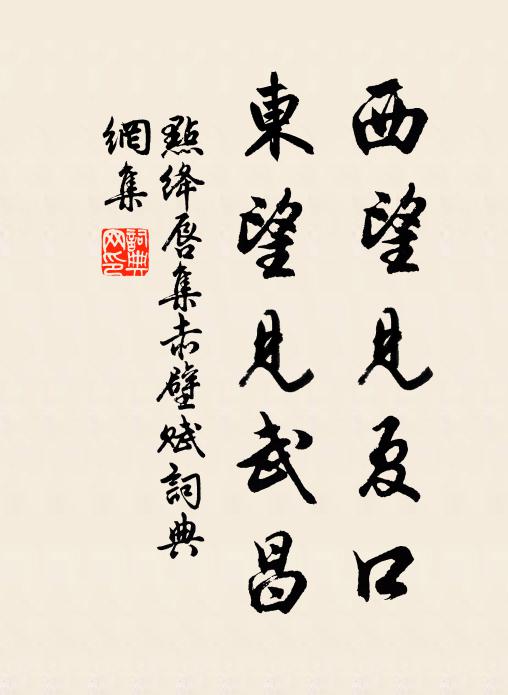 西望見夏口
東望見武昌
點絳唇集赤壁賦詞典
網集
詞典
网印